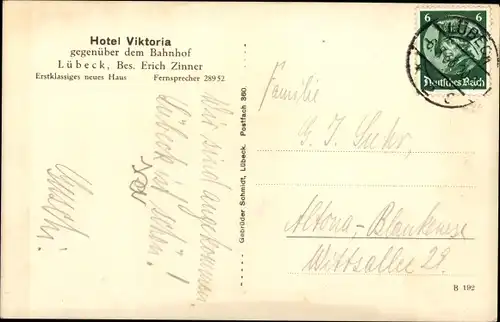 Hotel Viktoria
gegenüber dem Bahnhof
Lübeck, Bes. Erich Zinner
Erstklassiges neues Haus Fernsprecher 28952
Wir sind angekommen.
Lübeck ist schön!
Gebrüder Schmidt, Lübeck. Postfach 360.
6 6
Deutsches Reich
LÜBECK
Familie
G. J. Suhr,
Altona-Blankenese
Wittsallee 28.
B 192